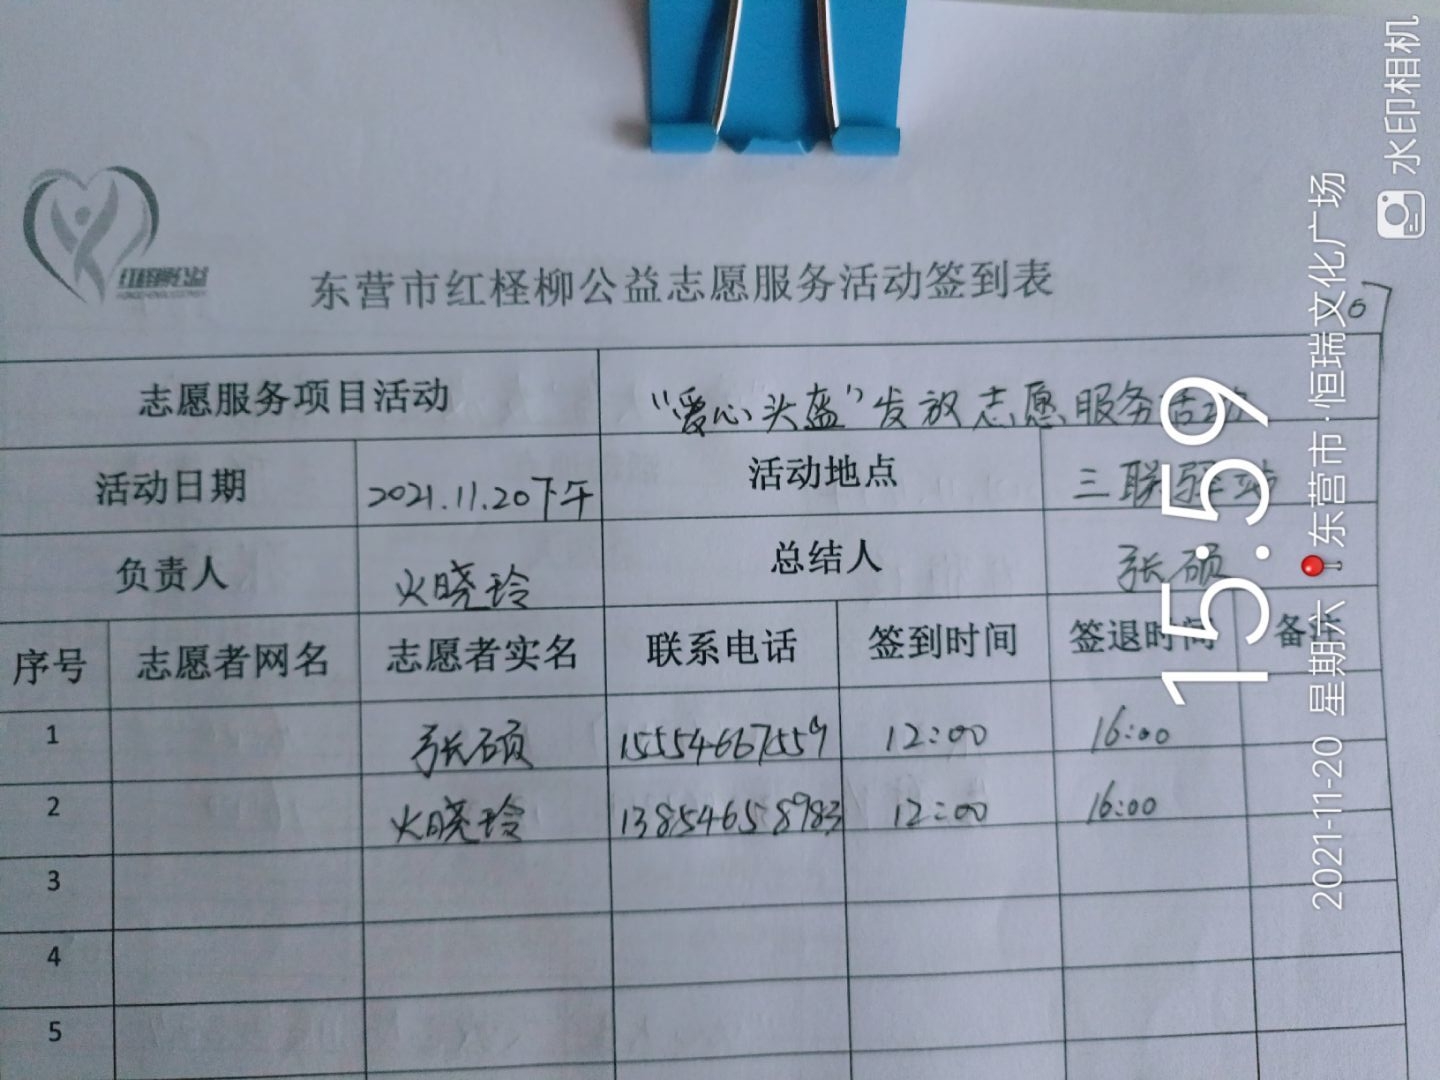 红柽柳公益
东营市红柽柳公益志愿服务活动签到表
志愿服务项目活动 “爱心头盔”发放志愿服务活动
活动日期 2021.11.20下午 活动地点 三联驿站
负责人 火晓玲 总结人 张硕
序号 志愿者网名 志愿者实名 联系电话 签到时间 签退时间 备注
1 张硕 15554667559 12:00 16:00
2 火晓玲 13854658983 12:00 16:00
3
4
5
15:59
2021-11-20 星期六 东营市·恒瑞文化广场
水印相机